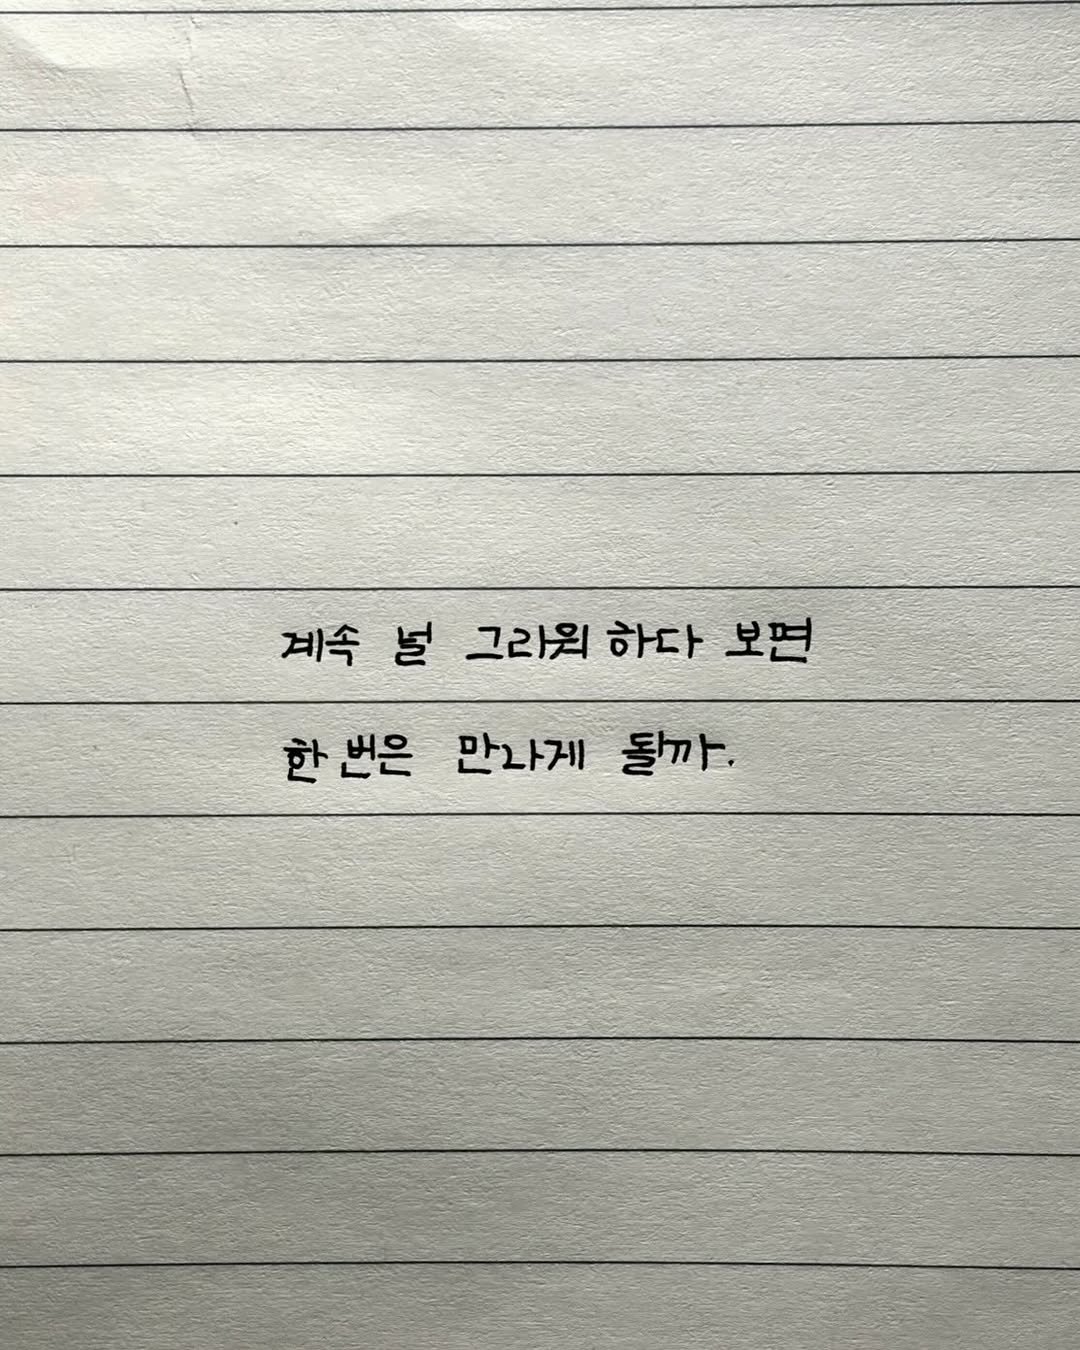 계속 널 그리워 하다 보면
한 번은 만나게 될까.